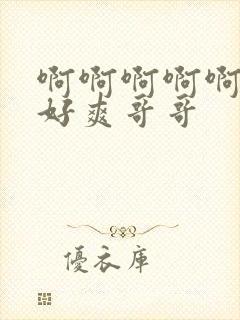 啊啊啊啊啊
好爽哥哥
優衣庫